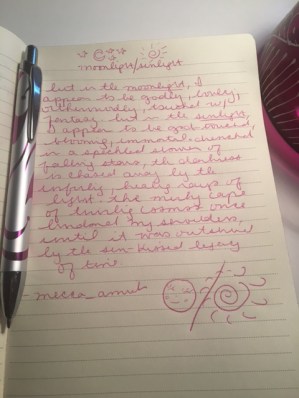 moonlight/sunlight
but in the moonlight, I
appear to be godly, lovely,
otherworldly, touched w/
fantasy. but in the sunlight,
I appear to be god-touched,
blooming, immortal. drenched
in a speckled shower of
falling stars, the darkness
is chased away by the
lofty, healing rays of
light. the minty cape
of cosmos once
my shoulders,
until it was outshined
by the sun-kissed legacy
of time.